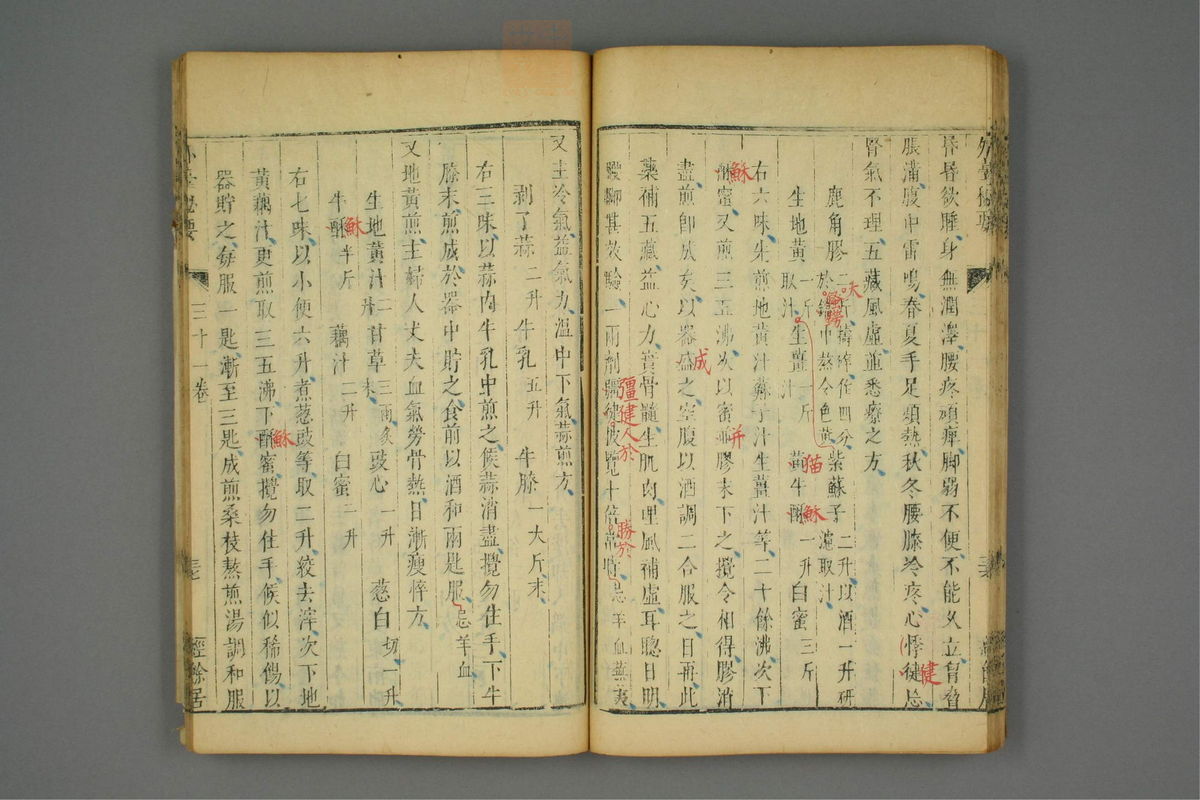 昏昏欲睡身無潤澤腰疼頑痺脚弱不便不能久立胷脅
脹滿腹中雷鳴春夏手足煩熱秋冬腰膝冷疼心悸徤忘
健
腎氣不理五藏風虛並悉療之方
鹿角膠 紫蘇子 二升以酒一升研濾取汁
於 中熬令色黄
大
生地黄 一斤取汁 生薑一斤汁 黄牛酥一升白蜜三斤
猫
穌
右六味先煎地黄汁蘇子汁生薑汁等二十餘沸次下
酥蜜又煎三五沸次以蜜並膠末下之攪令相得膠消
穌
并
盡煎即成矣以器盛之空腹以酒調二合服之日再此
成
藥補五藏益心力實骨髓生肌肉理風補虛耳聰目明
腰脚甚效驗一兩劑 十倍常 忌羊血蕪荑
彊健人於
勝於
又主冷氣益氣力溫中下氣蒜煎方
剥了蒜二升牛乳五升 牛膝一大斤末
右三味以蒜内牛乳中煎之候蒜消盡攪勿住手下牛
膝末煎成於器中貯之食前以酒和兩匙服忌羊血
又地黄煎主婦人丈夫血氣勞骨熱日漸瘦悴方
生地黄汁二升 甘草三兩炙末 豉心一升 葱白切一升
牛酥半斤 藕汁二升 白蜜一升
穌
右七味以小便六升煮葱豉等取二升絞去滓次下地
黄藕汁更煎取三五沸下酥蜜攪勿住手候似稀餳以
穌
器貯之每服一匙漸至三匙成煎桑枝熬煎湯調和服
外臺秘要
三十一卷
經餘居